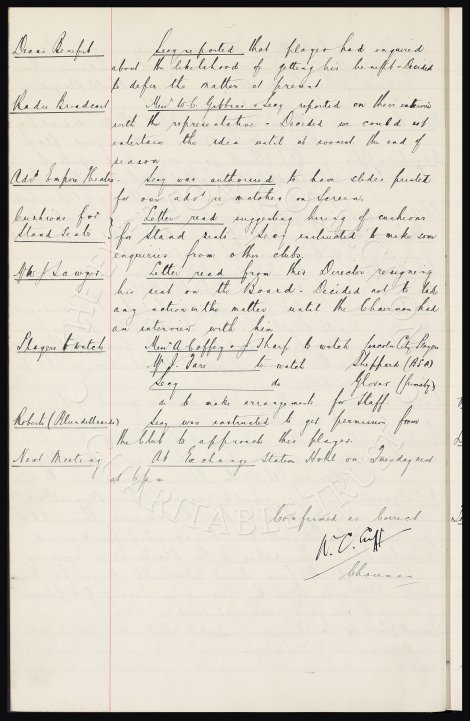 Deans Benefit Secy reported that player had enquired
about the likelihood of getting his benefit - Decided
to defer the matter at present
Radio Broadcast Messrs W.C. Gibbins & Secy reported on their interview
with the representative - Decided we could not
entertain the idea until at soonest the end of
season
Advt Empire Theatre. Secy was authorised to have slides printed
for our advt re matches on Screen.
Cushions for Letter read suggesting hiring of cushions
Stand Seats for Stand seats. Secy instructed to make some
enquiries from other clubs.
Mr W J Sawyer. Letter read from this Director resigning
his seat on the Board. Decided not to take
any action in the matter until the Chairman had
an interview with him
Players to watch Messrs A Coffey & J Sharp to watch Lincoln City Players
Mr J. Fare to watch Sheppard
Secy do Glover (Grimsby)
do to make arrangement for Staff
Roberts Secy was instructed to get permission from
the Club to approach this player.
Next Meeting At Exchange Station Hotel on Tuesday next
at 6 pm
Confirmed as Correct
W. C. Cuff
Chairman
CHARITABLE TRUST